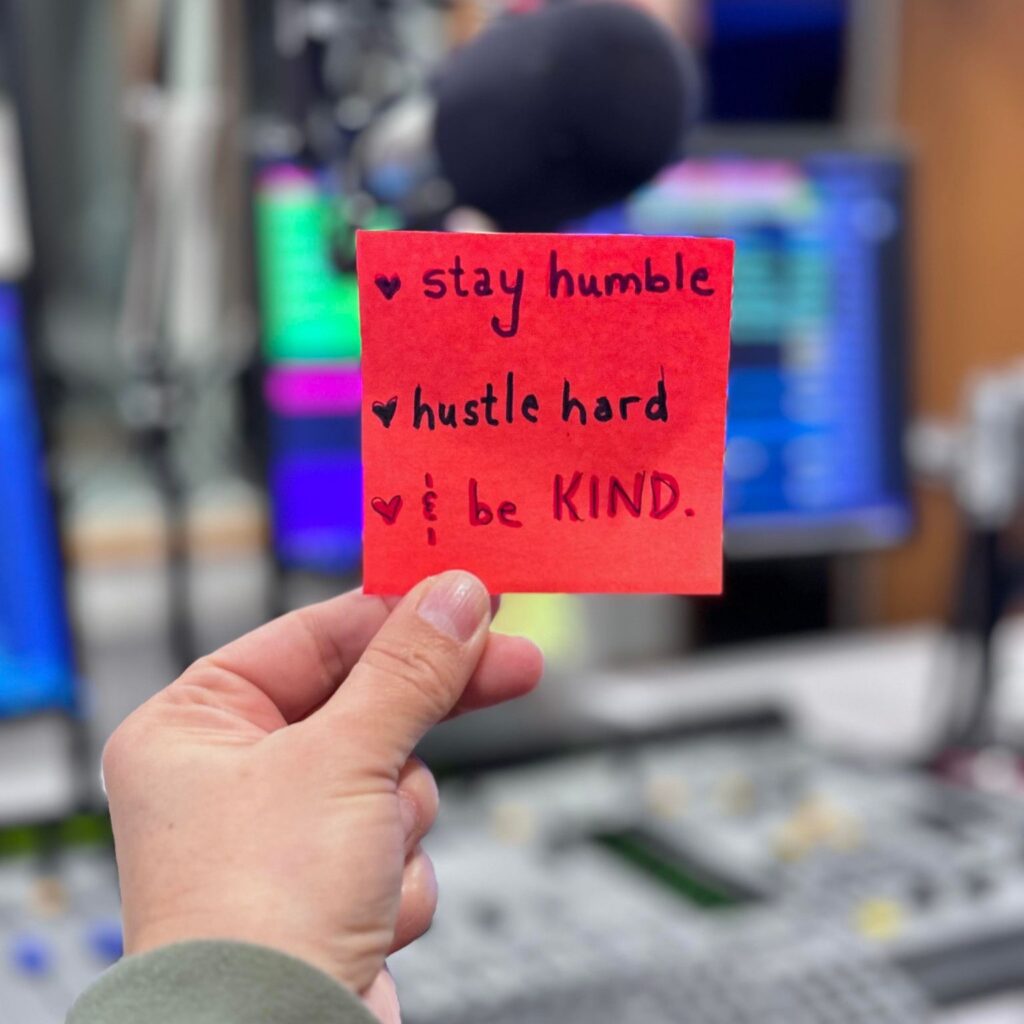 ♥ stay humble
♥ hustle hard
♥ & be KIND.